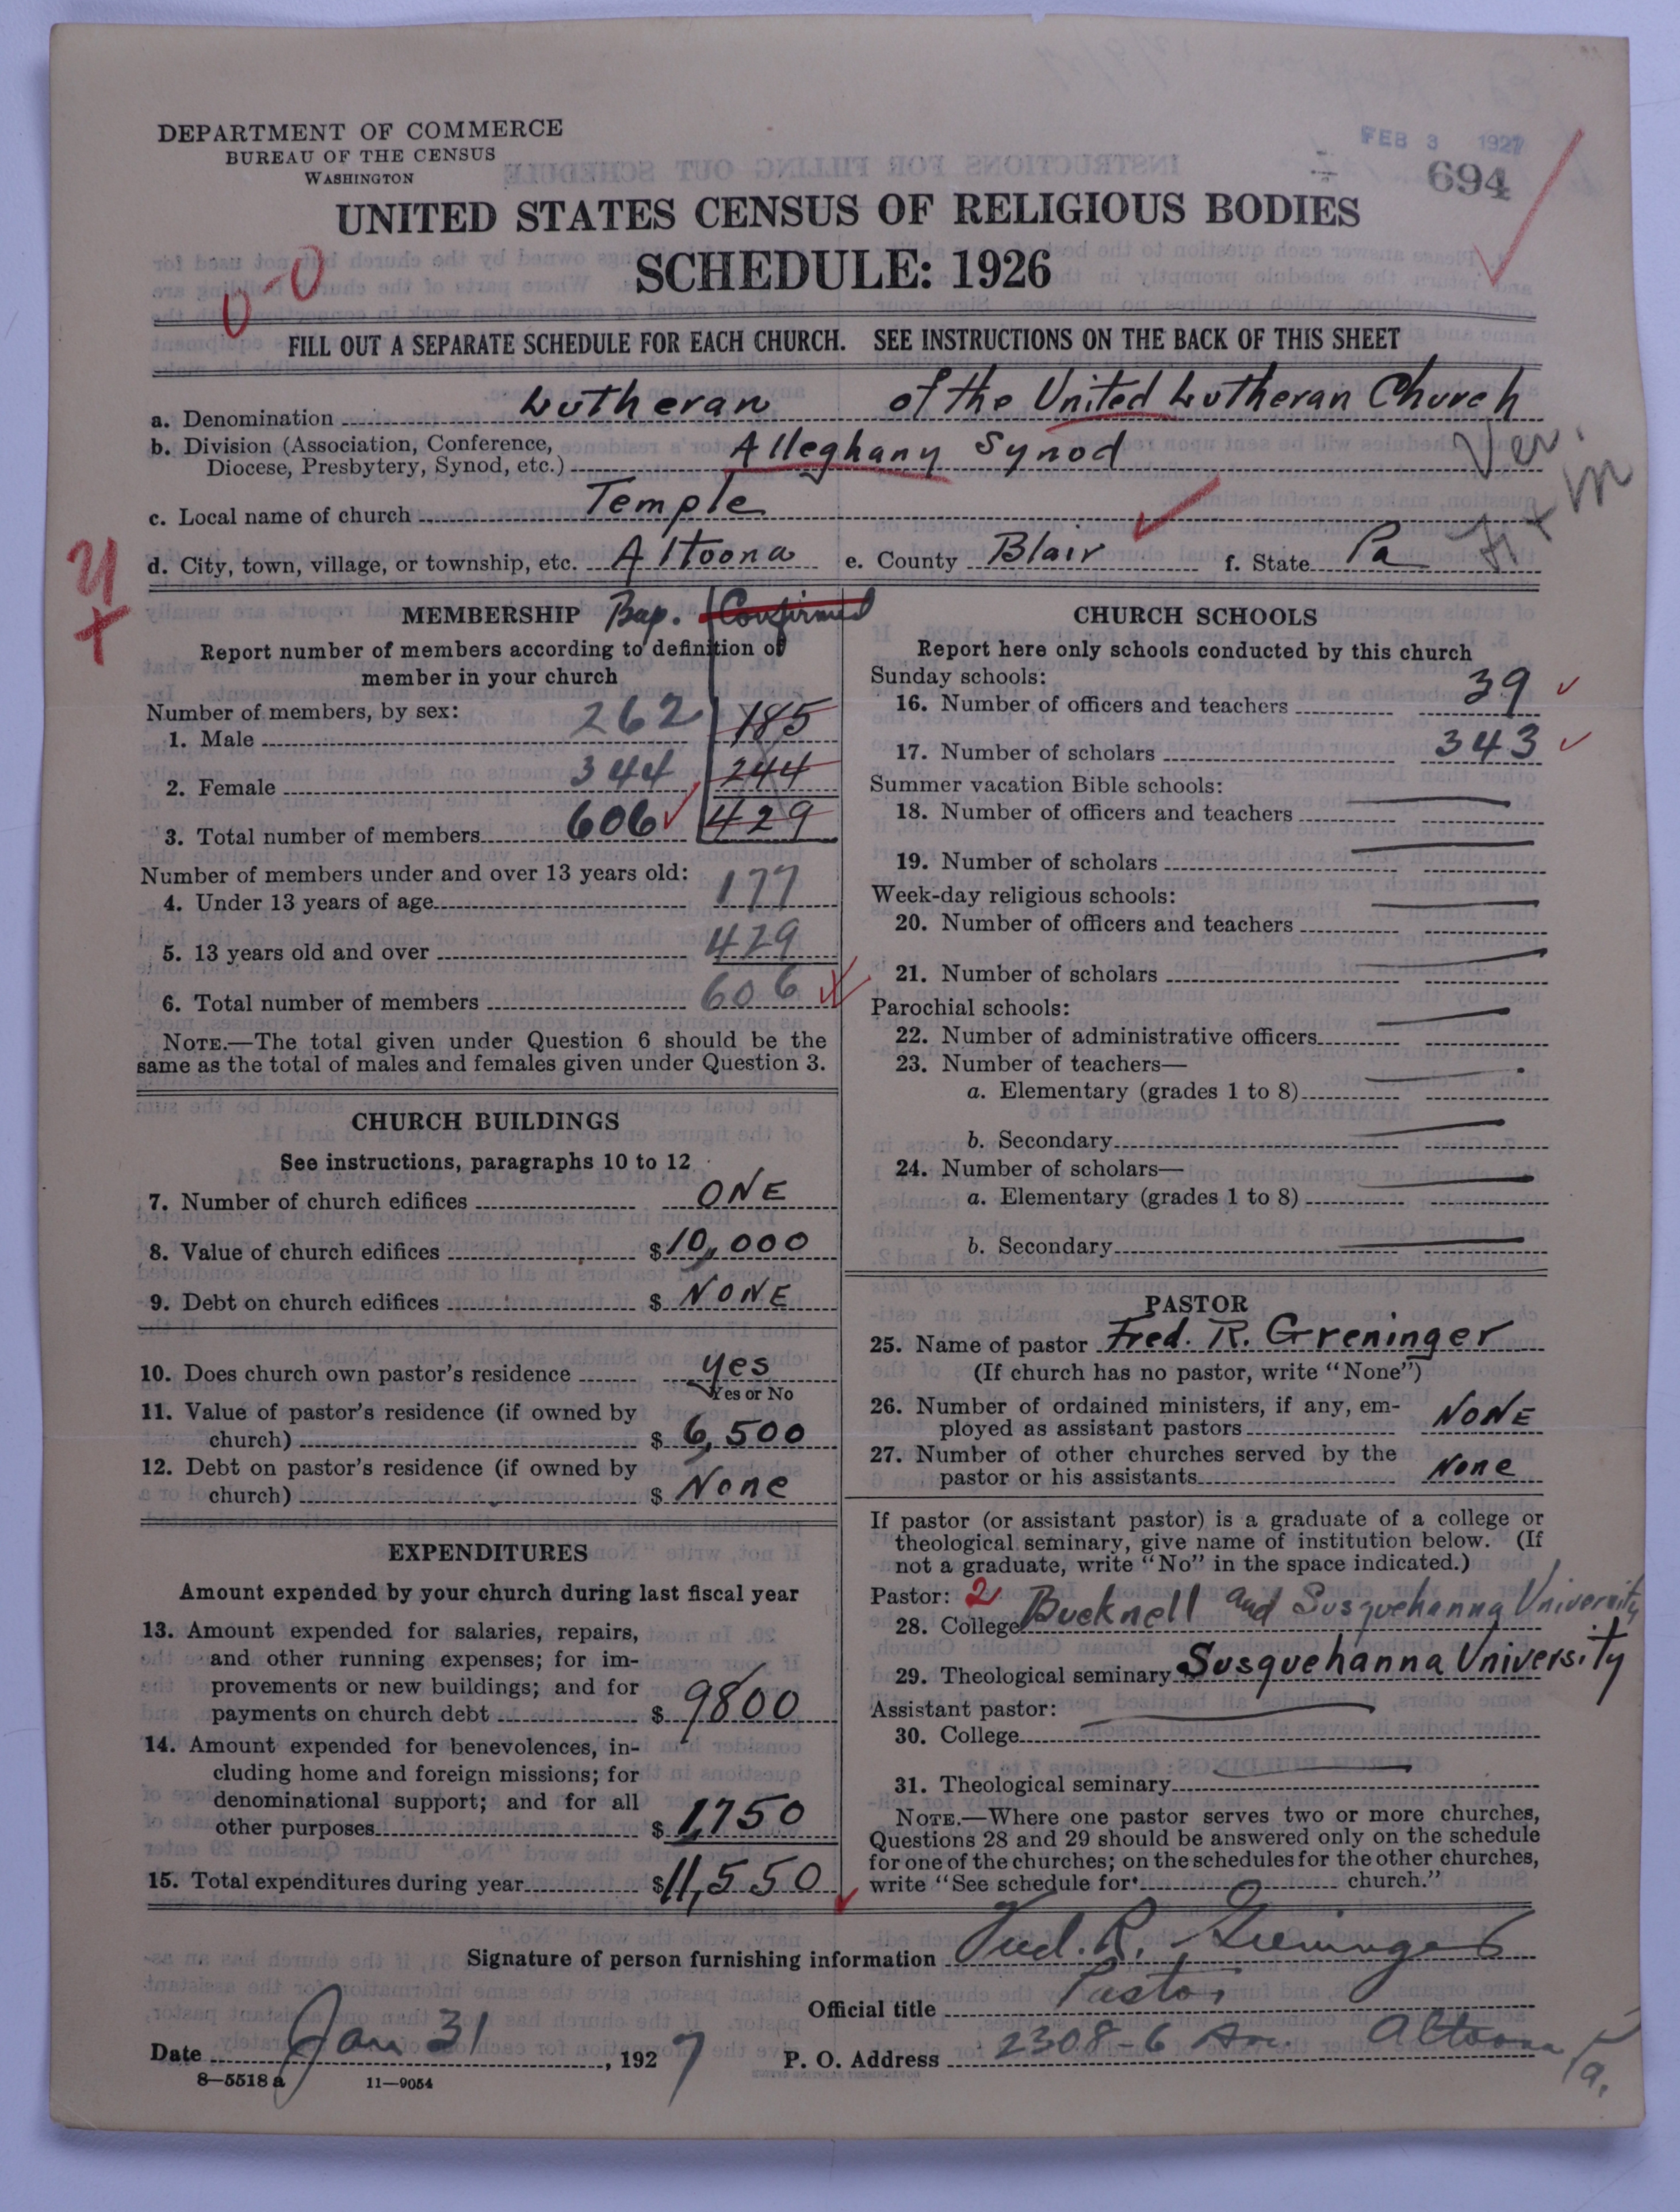 DEPARTMENT OF COMMERCE
BUREAU OF THE CENSUS
WASHINGTON
FEB 3 1927
694
UNITED STATES CENSUS OF RELIGIOUS BODIES
SCHEDULE: 1926
FILL OUT A SEPARATE SCHEDULE FOR EACH CHURCH. SEE INSTRUCTIONS ON THE BACK OF THIS SHEET
a. Denomination Lutheran of the United Lutheran Church
b. Division (Association, Conference,
Diocese, Presbytery, Synod, etc.) Alleghany Synod
Ver.
c. Local name of church Temple
d. City, town, village, or township, etc. Altoona e. County Blair f. State Pa
MEMBERSHIP Bap. Confirmed
Report number of members according to definition of
member in your church
Number of members, by sex:
1. Male 262 185
2. Female 344 244
3. Total number of members 606 429
Number of members under and over 13 years old:
4. Under 13 years of age 177
5. 13 years old and over 429
6. Total number of members 606
NOTE.—The total given under Question 6 should be the
same as the total of males and females given under Question 3.
CHURCH BUILDINGS
See instructions, paragraphs 10 to 12
7. Number of church edifices ONE
8. Value of church edifices $10,000
9. Debt on church edifices $ NONE
10. Does church own pastor's residence yes
Yes or No
11. Value of pastor's residence (if owned by
church) $ 6,500
12. Debt on pastor's residence (if owned by
church) $ None
EXPENDITURES
Amount expended by your church during last fiscal year
13. Amount expended for salaries, repairs,
and other running expenses; for im-
provements or new buildings; and for
payments on church debt $ 9800
14. Amount expended for benevolences, in-
cluding home and foreign missions; for
denominational support; and for all
other purposes $ 1,750
15. Total expenditures during year $11,550
CHURCH SCHOOLS
Report here only schools conducted by this church
Sunday schools:
16. Number of officers and teachers 39
17. Number of scholars 343
Summer vacation Bible schools:
18. Number of officers and teachers
19. Number of scholars
Week-day religious schools:
20. Number of officers and teachers
21. Number of scholars
Parochial schools:
22. Number of administrative officers
23. Number of teachers—
a. Elementary (grades 1 to 8)
b. Secondary
24. Number of scholars—
a. Elementary (grades 1 to 8)
b. Secondary
PASTOR
25. Name of pastor Fred. R. Greninger
(If church has no pastor, write "None")
26. Number of ordained ministers, if any, em-
ployed as assistant pastors NONE
27. Number of other churches served by the
pastor or his assistants None
If pastor (or assistant pastor) is a graduate of a college or
theological seminary, give name of institution below. (If
not a graduate, write "No" in the space indicated.)
Pastor: 2
28. College Bucknell and Susquehanna University
29. Theological seminary Susquehanna University
Assistant pastor:
30. College
31. Theological seminary
NOTE.—Where one pastor serves two or more churches,
Questions 28 and 29 should be answered only on the schedule
for one of the churches; on the schedules for the other churches,
write "See schedule for church."
Signature of person furnishing information Fred. R. Greninger
Official title Pastor
Date Jan 31, 1927 P. O. Address 2308-6 Ave. Altoona Pa.
8—5518 a 11—9054